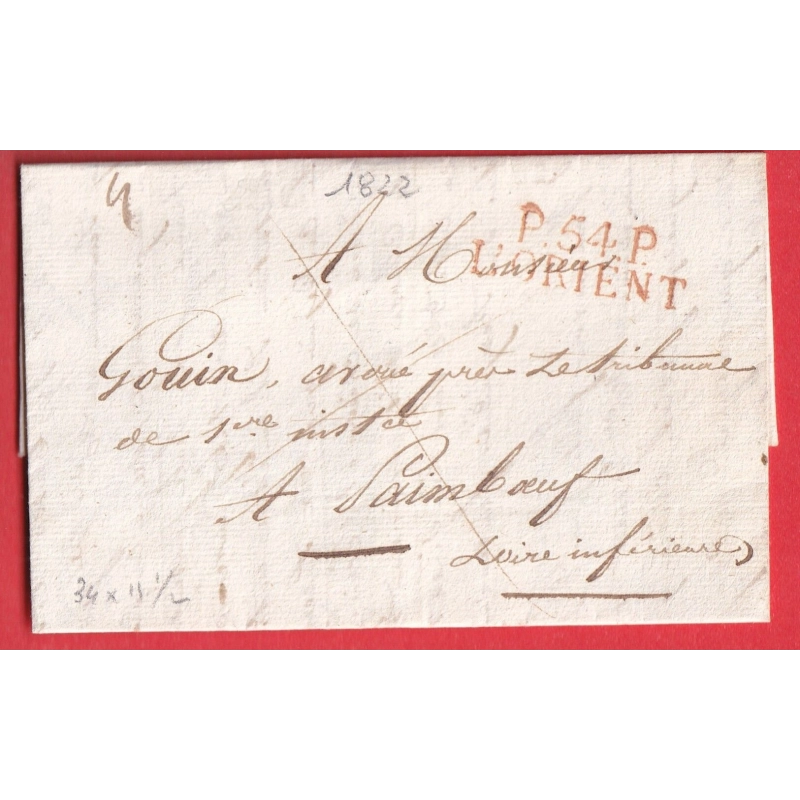 1822
P.54.P.
L'ORIENT
A Monsieur
Gouin, avoué près Le tribunal
de 1ere instce
A Paimboeuf
Loire inférieure
34 x 11 1/2